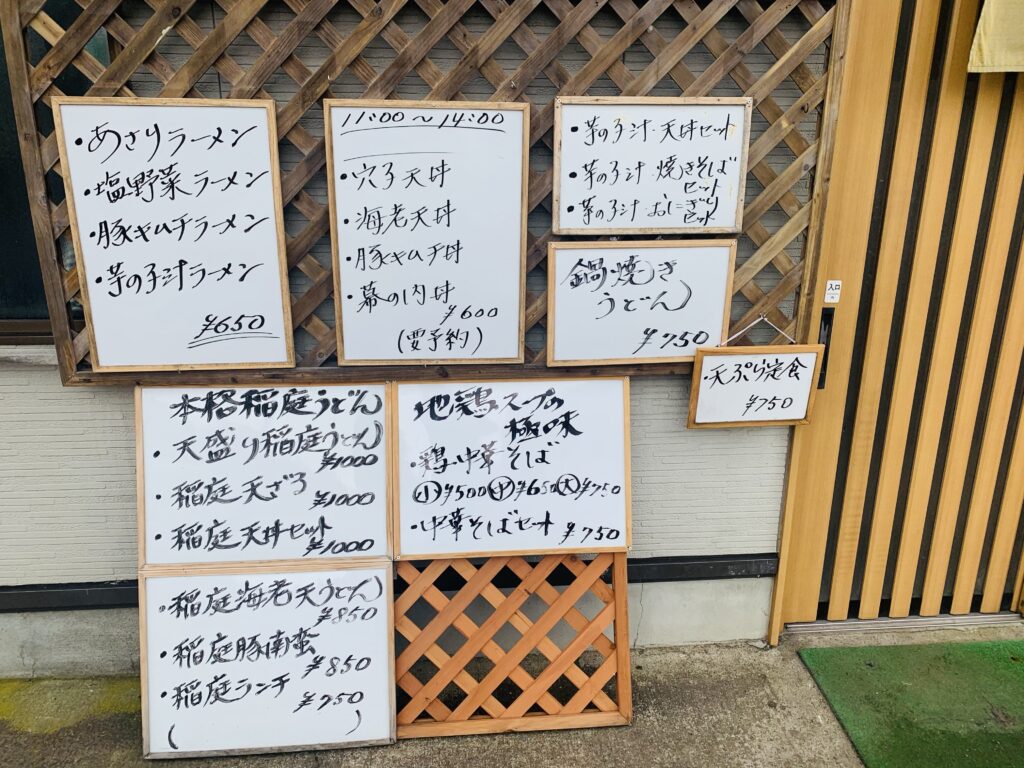 ・あさりラーメン
・塩野菜ラーメン
・豚キムチラーメン
・芋の子汁ラーメン
¥650
11:00〜14:00
・穴子天丼
・海老天丼
・豚キムチ丼
・幕の内丼
¥600
(要予約)
・芋の子汁・天丼セット
・芋の子汁・焼きそば
セット
・芋の子汁・おにぎり
セット
鍋焼き
うどん
¥750
入口
・天ぷら定食
¥750
本格稲庭うどん
・天盛り稲庭うどん
¥1000
・稲庭天ざる
¥1000
・稲庭天丼セット
¥1000
地鶏スープの
極味
・鶏中華そば
小¥500中¥650大¥750
・中華そばセット ¥750
・稲庭海老天うどん
¥850
・稲庭豚南蛮
¥850
・稲庭ランチ
¥750
( )